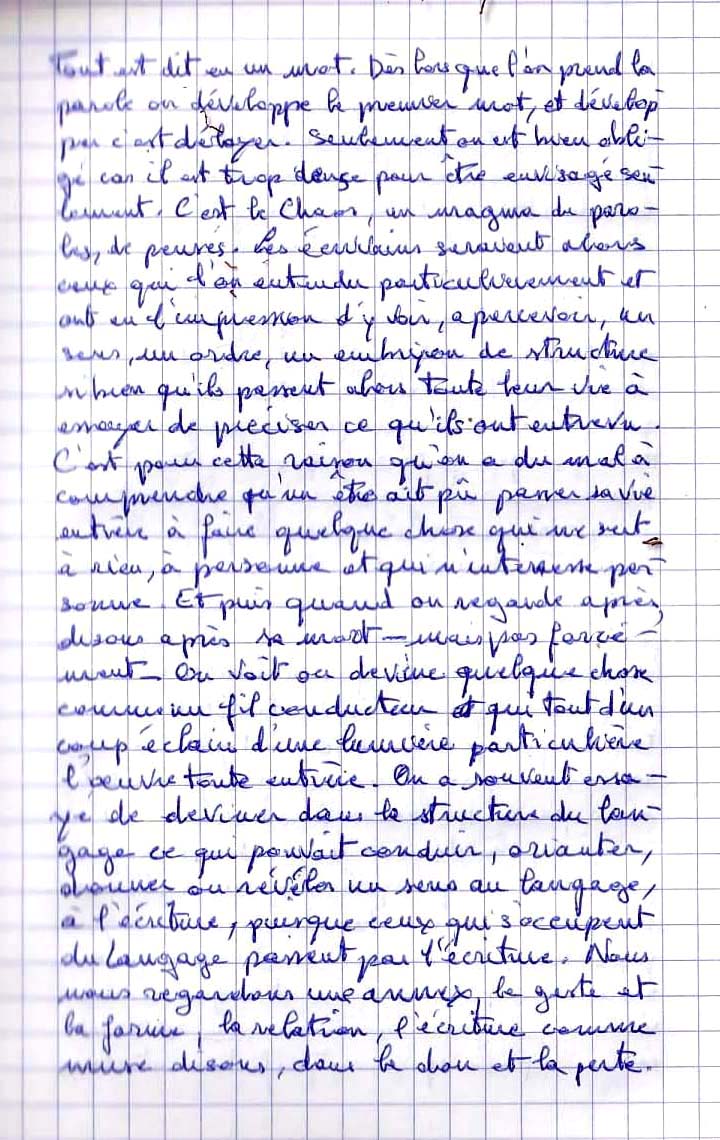 Tout est dit en un mot. Dès lors que l'on prend la
parole on développe le premier mot, et dévelop-
per c'est délayer. Seulement on est bien obli-
gé car il est trop dense pour être envisagé seu-
lement. C'est le Chaos, un magma de paro-
les, de pensées. Les écrivains seraient alors
ceux qui l'on entendu particulièrement et
ont eu l'impression d'y voir, apercevoir, un
sens, un ordre, un embryon de structure
si bien qu'ils passent alors toute leur vie à
essayer de préciser ce qu'ils ont entrevu.
C'est pour cette raison qu'on a du mal à
comprendre qu'un être ait pû passer sa vie
entière à faire quelque chose qui ne sert
à rien, à personne et qui n'intéresse per-
sonne. Et puis quand on regarde après,
disons après sa mort – mais pas forcé-
ment – on voit on devine quelque chose
comme un fil conducteur et qui tout d'un
coup éclaire d'une lumière particulière
l'oeuvre toute entière. On a souvent essa-
yé de deviner dans la structure du lan-
gage ce qui pouvait conduire, orienter,
donner ou révéler un sens au langage,
à l'écriture, puisque ceux qui s'occupent
du langage passent par l'écriture. Nous
nous regardons une annexe, le geste et
la forme, la relation, l'écriture comme
muse disons, dans le don et la perte.